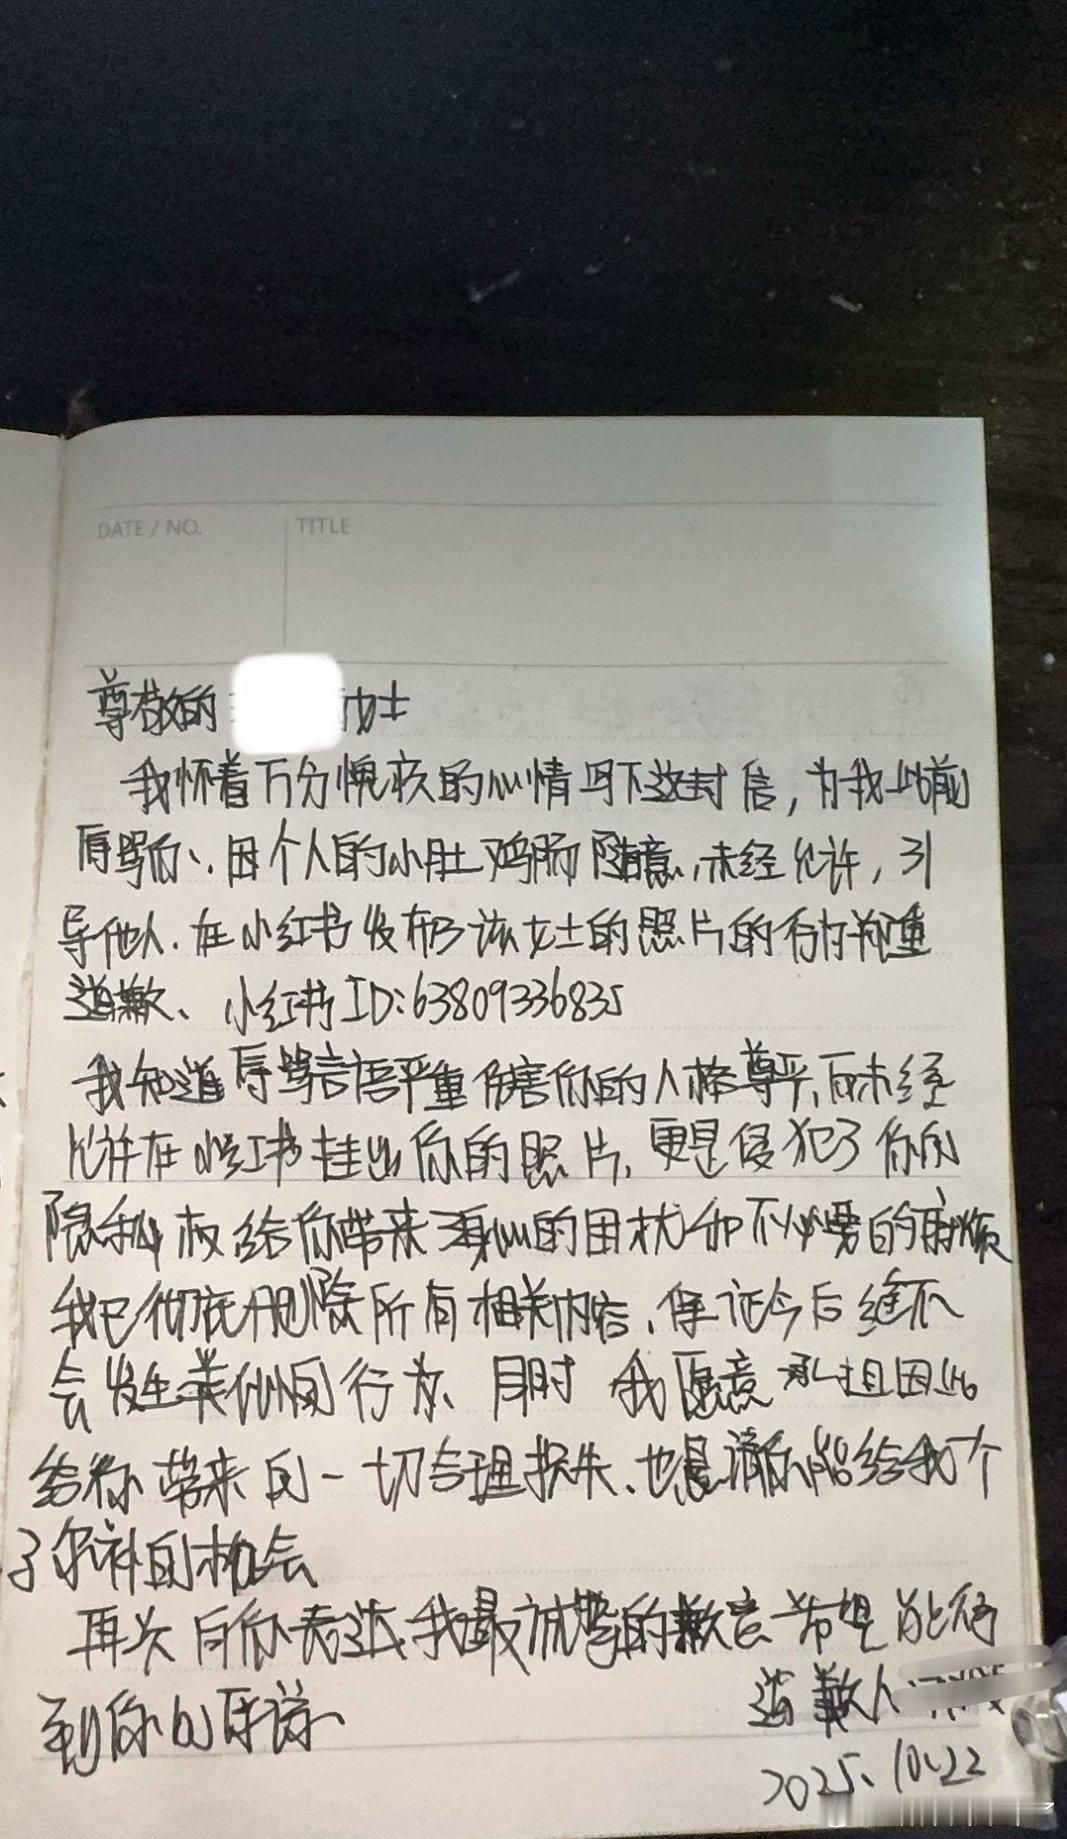 DATE / NO.
TITLE
尊敬的 女士
我怀着万分愧疚的心情写下这封信，为我此前
辱骂你、因个人的小肚鸡肠随意，未经允许，引
导他人、在小红书发布了该女士的照片的行为郑重
道歉、小红书ID:63809336835
我知道辱骂言语严重伤害你的人格尊严，而未经
允许在小红书挂出你的照片，更是侵犯了你的
隐私权给你带来了身心的困扰和不必要的麻烦
我已彻底删除所有相关内容、保证今后绝不
会发生类似行为、同时 我愿意承担因此
给你带来的一切合理损失、也恳请你能给我个
弥补的机会
再次向你表达我最诚挚的歉意 希望能得
到你的原谅、
道歉人
2025、10、22